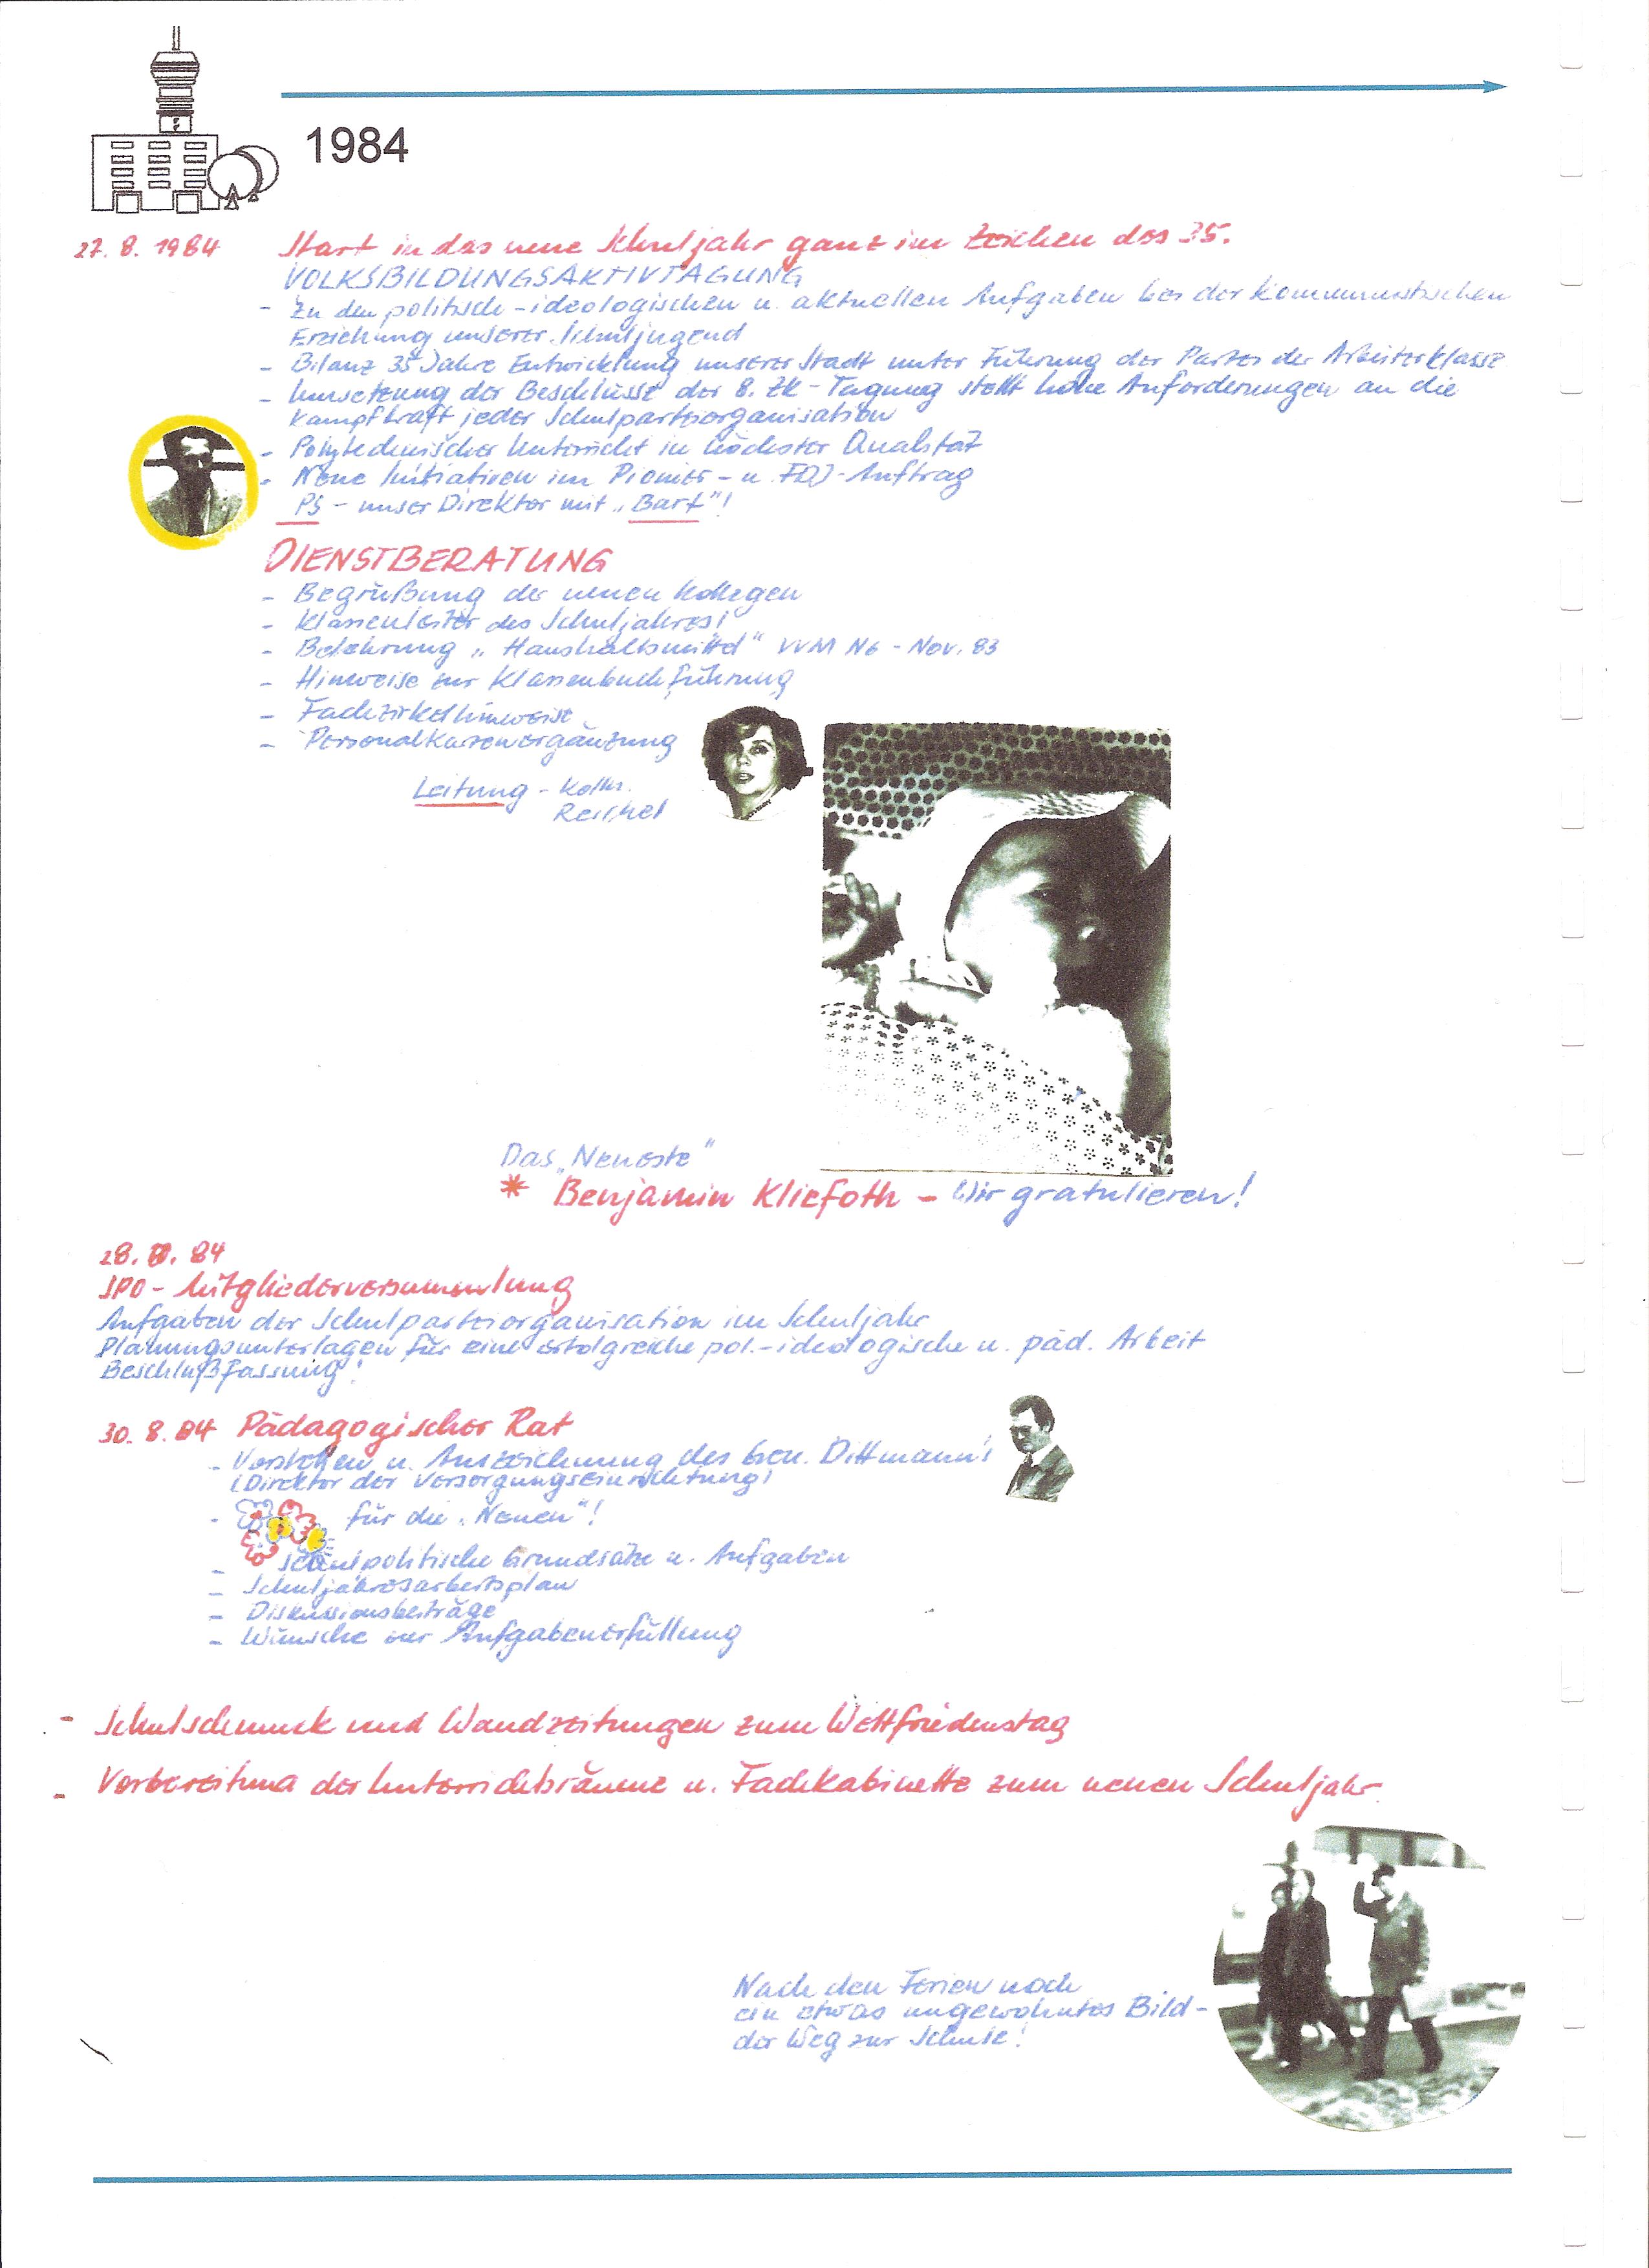 1984
27. 8. 1984 Start in das neue Schuljahr ganz im Zeichen des 35.
VOLKSBILDUNGSAKTIVTAGUNG
- Zu den politisch-ideologischen u. aktuellen Aufgaben bei der kommunistischen
Erziehung unserer Schuljugend
- Bilanz 35 Jahre Entwicklung unserer Stadt unter Führung der Partei der Arbeiterklasse
- Umsetzung der Beschlüsse der 8. ZK-Tagung stellt hohe Anforderungen an die
Kampfkraft jeder Schulparteiorganisation
- Polytechnischer Unterricht in höchster Qualität
- Neue Initiativen im Pionier- u. FDJ-Auftrag
PS - unser Direktor mit „Bart"!
DIENSTBERATUNG
- Begrüßung der neuen Kollegen
- Klassenleiter des Schuljahres!
- Belehrung „Haushaltsmittel" VVM N6 - Nov. 83
- Hinweise zur Klassenbuchführung
- Fachzirkelhinweise
- Personalkartenergänzung
Leitung - Kolln.
Reichel
Das „Neueste"
* Benjamin Kliefoth - Wir gratulieren!
28. 8. 84
SPO - Mitgliederversammlung
Aufgaben der Schulparteiorganisation im Schuljahr
Planungsunterlagen für eine erfolgreiche pol.-ideologische u. päd. Arbeit
Beschlußfassung!
30. 8. 84 Pädagogischer Rat
- Vorstellen u. Auszeichnung des Gen. Dittmann!
(Direktor der Versorgungseinrichtung)
- für die „Neuen"!
- Schulpolitische Grundsätze u. Aufgaben
- Schuljahresarbeitsplan
- Diskussionsbeiträge
- Wünsche zur Aufgabenerfüllung
- Schulschmuck und Wandzeitungen zum Weltfriedenstag
- Vorbereitung der Unterrichtsräume u. Fachkabinette zum neuen Schuljahr.
Nach den Ferien noch
ein etwas ungewohntes Bild -
der Weg zur Schule!